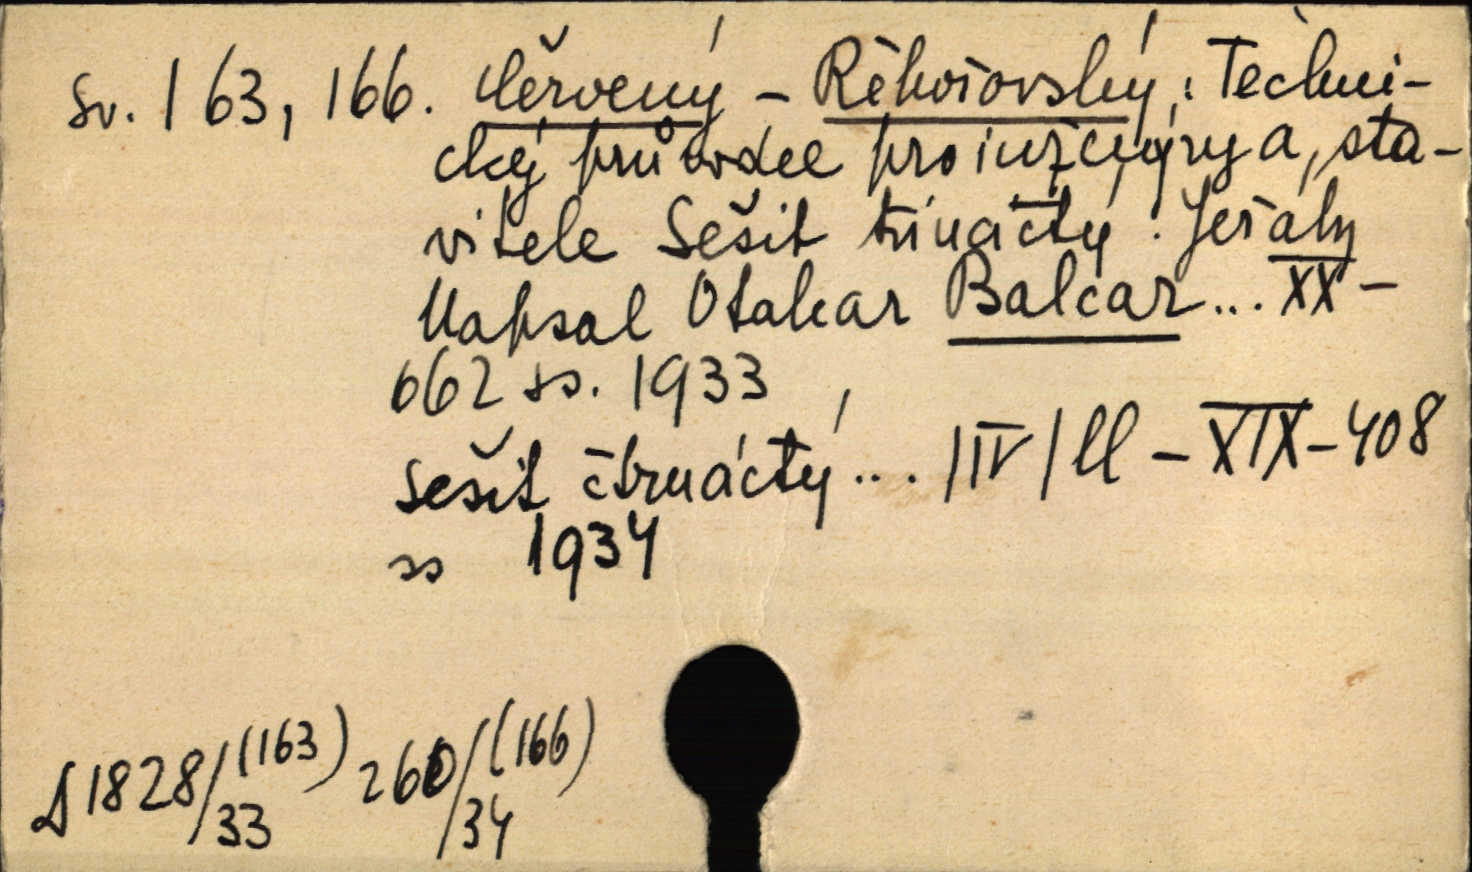 Sv. 163, 166. Červený - Řehořovský: Techni-
cký průvodce pro inženýry a sta-
vitele Sešit třináctý. Jeřáby
Napsal Otakar Balcar... XX -
662 ss. 1933
Sešit čtrnáctý... /IV/ - XIX - 408
ss 1934
1828/33 (163) 260/34 (166)